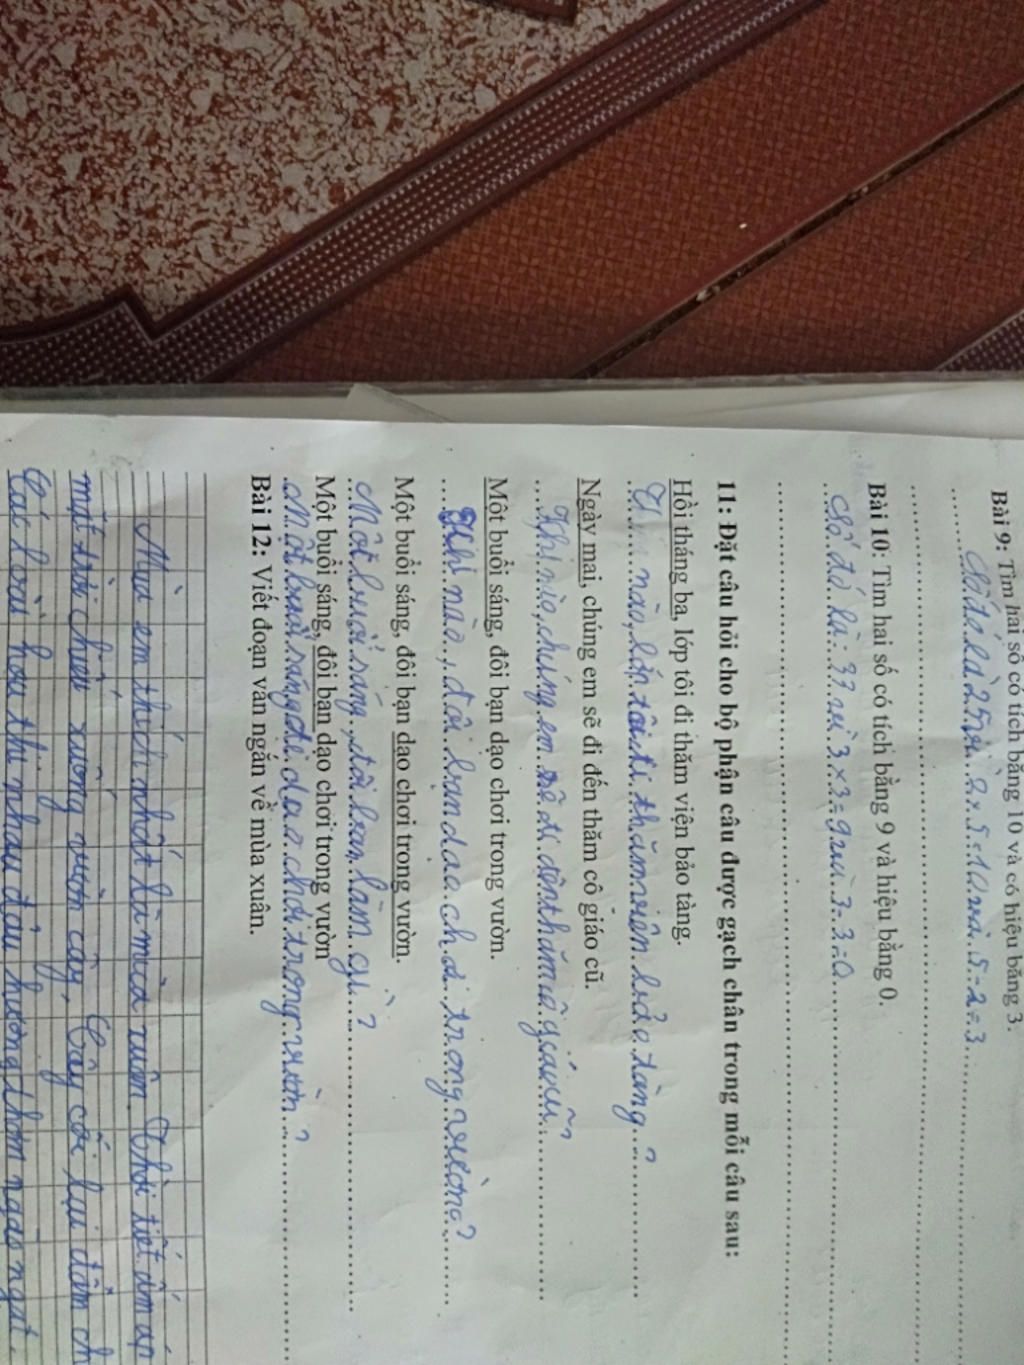 Bài 9: Tìm hai số có tích bằng 10 và có hiệu bằng 3.
2 x 5 = 10 và 5 - 2 = 3
Bài 10: Tìm hai số có tích bằng 9 và hiệu bằng 0.
Số đó là: 3 3 x 3 = 9 3 - 3 = 0
11: Đặt câu hỏi cho bộ phận câu được gạch chân trong mỗi câu sau:
Hồi tháng ba, lớp tôi đi thăm viện bảo tàng.
nào, lớp tôi đi thăm viện bảo tàng ?
Ngày mai, chúng em sẽ đi đến thăm cô giáo cũ.
Khi nào, chúng em sẽ đi đến thăm cô giáo cũ ?
Một buổi sáng, đôi bạn dạo chơi trong vườn.
Khi nào, đôi bạn dạo chơi trong vườn ?
Một buổi sáng, đôi bạn dạo chơi trong vườn.
Một buổi sáng, đôi bạn làm gì ?
Một buổi sáng, đôi bạn dạo chơi trong vườn
Một buổi sáng dạo chơi trong vườn ?
Bài 12: Viết đoạn văn ngắn về mùa xuân.
Mùa em thích nhất là mùa xuân. Thời tiết ấm áp
mặt trời chiếu xuống vườn cây. Cây cối lại đâm ch
Các loài hoa thi nhau đậu hương thơm ngào ngạt.